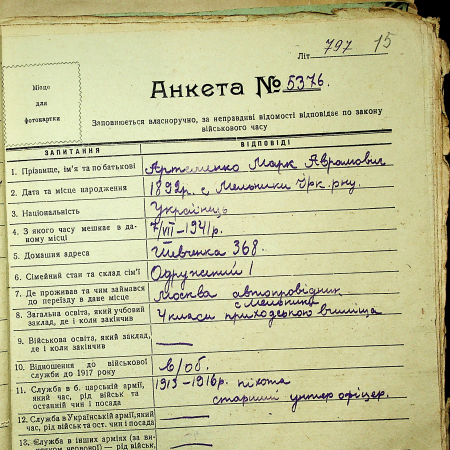 Літ 797 15
Місце
для
фотокартки
Анкета № 5376.
Заповнюється власноручно, за неправдиві відомості відповідає по закону
військового часу
ЗАПИТАННЯ ВІДПОВІДІ
1. Прізвище, ім'я та по батькові Артеменко Марк Аврамович
2. Дата та місце народження 1892р. с Мельники Чрк. рну.
3. Національність Українець
4. З якого часу мешкає в да-
ному місці 7/VII–1941р.
5. Домашня адреса Шевченка 368.
6. Сімейний стан та склад сім'ї Одружений 1
7. Де проживав та чим займався
до переїзду в дане місце Москва автопровідник
с Мельники
8. Загальна освіта, який учбовий
заклад, де і коли закінчив 4 класи приходською вчилища
9. Військова освіта, який заклад,
де і коли закінчив —
10. Відношення до військової
служби до 1917 року в/об.
11. Служба в б. царській армії,
який час, рід військ та
останній чин і посада 1913–1916р. піхота
старший унтер офіцер.
12. Служба в Українській армії, який
час, рід військ та ост. чин і посада —
13. Служба в інших арміях (за ви-
нятком червоної) — рід військ, —